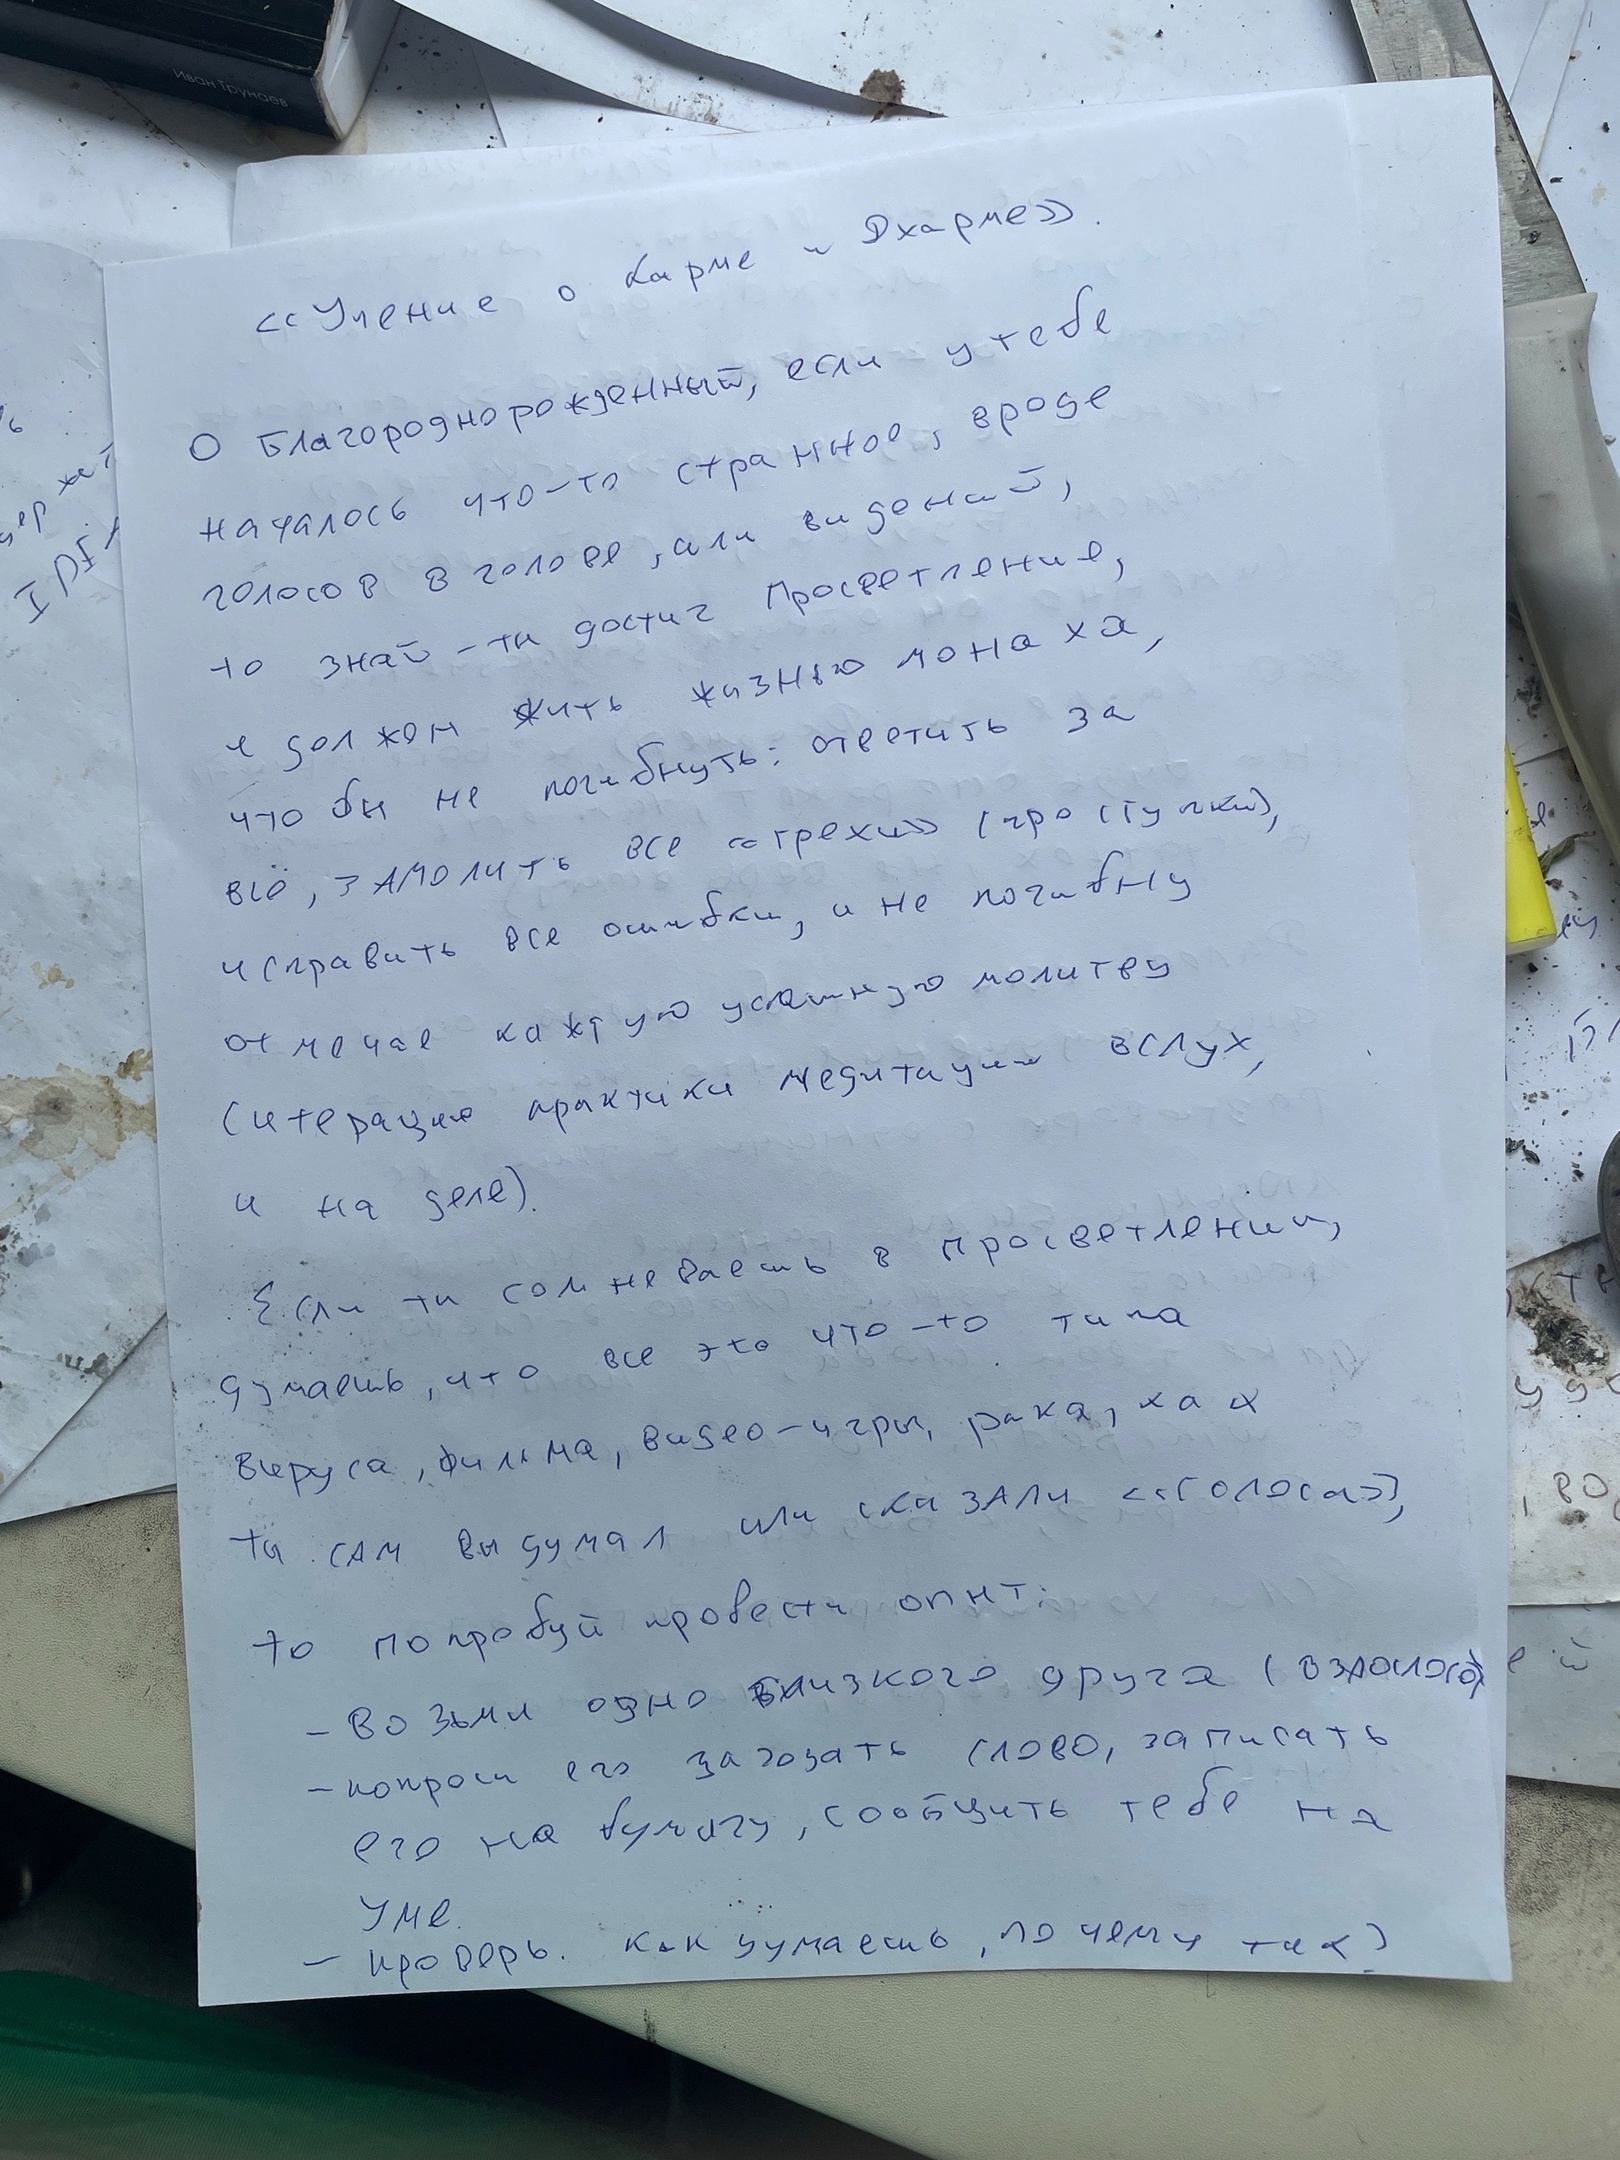 Иван Трунаев
<<Учение о карме и Дхарме>>.
О Благороднорожденный, если у тебе
началось что-то странное, вроде
голосов в голове, или видений,
то знай - ты достиг Просветление,
и должен жить жизнью монаха,
что бы не погибнуть: ответить за
всё, зАмолить все <<грехи>> (проступки),
исправить все ошибки, и не погибну
отмечае каждую успешную молитву
(итерацию практики медитации вслух,
и на деле).
Если ты сомневаешь в просветлении,
думаешь, что все это что-то типа
вируса, фильма, видео-игры, рака,
ты сАм выдумал или скАзАли <<голоса>>,
то попробуй провести опыт:
- возьми одно близкого друга (взрослого)
- попроси его загодать слово, записать
его на бумагу, сообщить тебе на
уме.
- проверь. как думаешь, почему так?